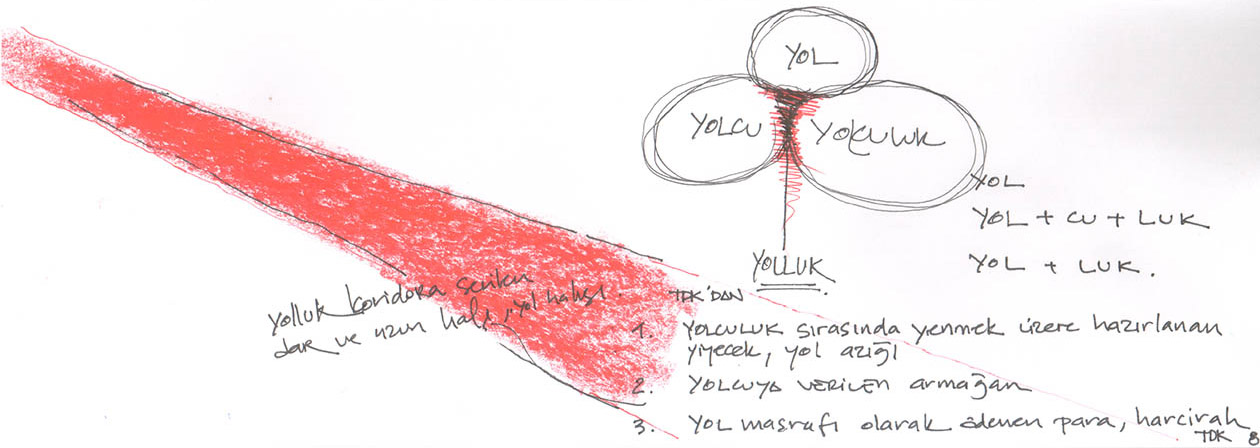 YOL
YOLCU
YOLCULUK
YOLLUK
YOL
YOL + CU + LUK
YOL + LUK.
yolluk koridora serilen
dar ve uzun halı, yol halısı.
TDK'DAN
1. YOLCULUK sırasında yenmek üzere hazırlanan
yiyecek, yol azığı
2. YOLCUYA VERİLEN armağan
3. YOL masrafı olarak ödenen para, harcirah
TDK 8